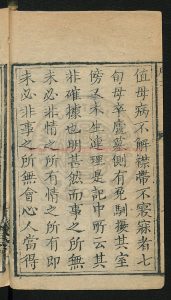 值母病不解襟帶不寢寐者七
旬母卒廬墓側有兎馴擾其室
傍又木生連理是記中所云其
非確據也明甚然而事之所無
未必非情之所有情之所有即
未必非事之所無會心人當得